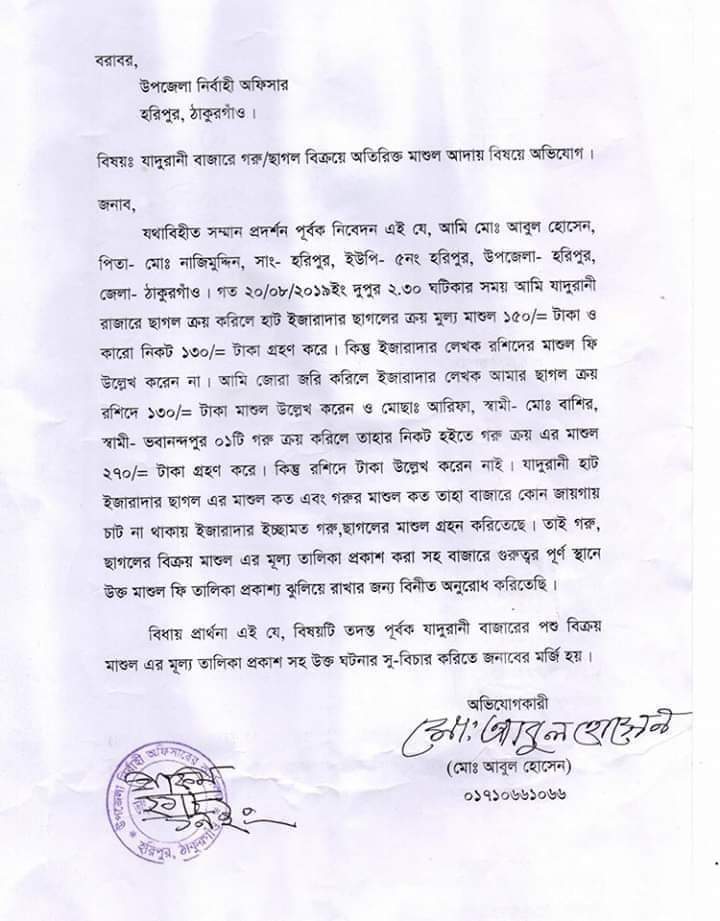 বরাবর,
উপজেলা নির্বাহী অফিসার
হরিপুর, ঠাকুরগাঁও।
বিষয়ঃ যাদুরানী বাজারে গরু/ছাগল বিক্রয়ে অতিরিক্ত মাশুল আদায় বিষয়ে অভিযোগ।
জনাব,
যথাবিহীত সম্মান প্রদর্শন পূর্বক নিবেদন এই যে, আমি মোঃ আবুল হোসেন,
পিতা- মোঃ নাজিমুদ্দিন, সাং- হরিপুর, ইউপি- ৫নং হরিপুর, উপজেলা- হরিপুর,
জেলা- ঠাকুরগাঁও। গত ২০/০৮/২০১৯ইং দুপুর ২.৩০ ঘটিকার সময় আমি যাদুরানী
রাজারে ছাগল ক্রয় করিলে হাট ইজারাদার ছাগলের ক্রয় মুল্য মাশুল ১৫০/= টাকা ও
কারো নিকট ১৩০/= টাকা গ্রহণ করে। কিন্তু ইজারাদার লেখক রশিদের মাশুল ফি
উল্লেখ করেন না। আমি জোরা জরি করিলে ইজারাদার লেখক আমার ছাগল ক্রয়
রশিদে ১৩০/= টাকা মাশুল উল্লেখ করেন ও মোছাঃ আরিফা, স্বামী- মোঃ বাশির,
স্বামী- ভবানন্দপুর ০১টি গরু ক্রয় করিলে তাহার নিকট হইতে গরু ক্রয় এর মাশুল
২৭০/= টাকা গ্রহণ করে। কিন্তু রশিদে টাকা উল্লেখ করেন নাই। যাদুরানী হাট
ইজারাদার ছাগল এর মাশুল কত এবং গরুর মাশুল কত তাহা বাজারে কোন জায়গায়
চাট না থাকায় ইজারাদার ইচ্ছামত গরু,ছাগলের মাশুল গ্রহন করিতেছে। তাই গরু,
ছাগলের বিক্রয় মাশুল এর মূল্য তালিকা প্রকাশ করা সহ বাজারে গুরুত্বর পূর্ণ স্থানে
উক্ত মাশুল ফি তালিকা প্রকাশ্য ঝুলিয়ে রাখার জন্য বিনীত অনুরোধ করিতেছি।
বিধায় প্রার্থনা এই যে, বিষয়টি তদন্ত পূর্বক যাদুরানী বাজারের পশু বিক্রয়
মাশুল এর মূল্য তালিকা প্রকাশ সহ উক্ত ঘটনার সু-বিচার করিতে জনাবের মর্জি হয়।
অভিযোগকারী
মোঃ আবুল হোসেন
(মোঃ আবুল হোসেন)
০১৭১০৬৬১০৬৬
উপজেলা নির্বাহী অফিসারের
হরিপুর, ঠাকুরগাঁও